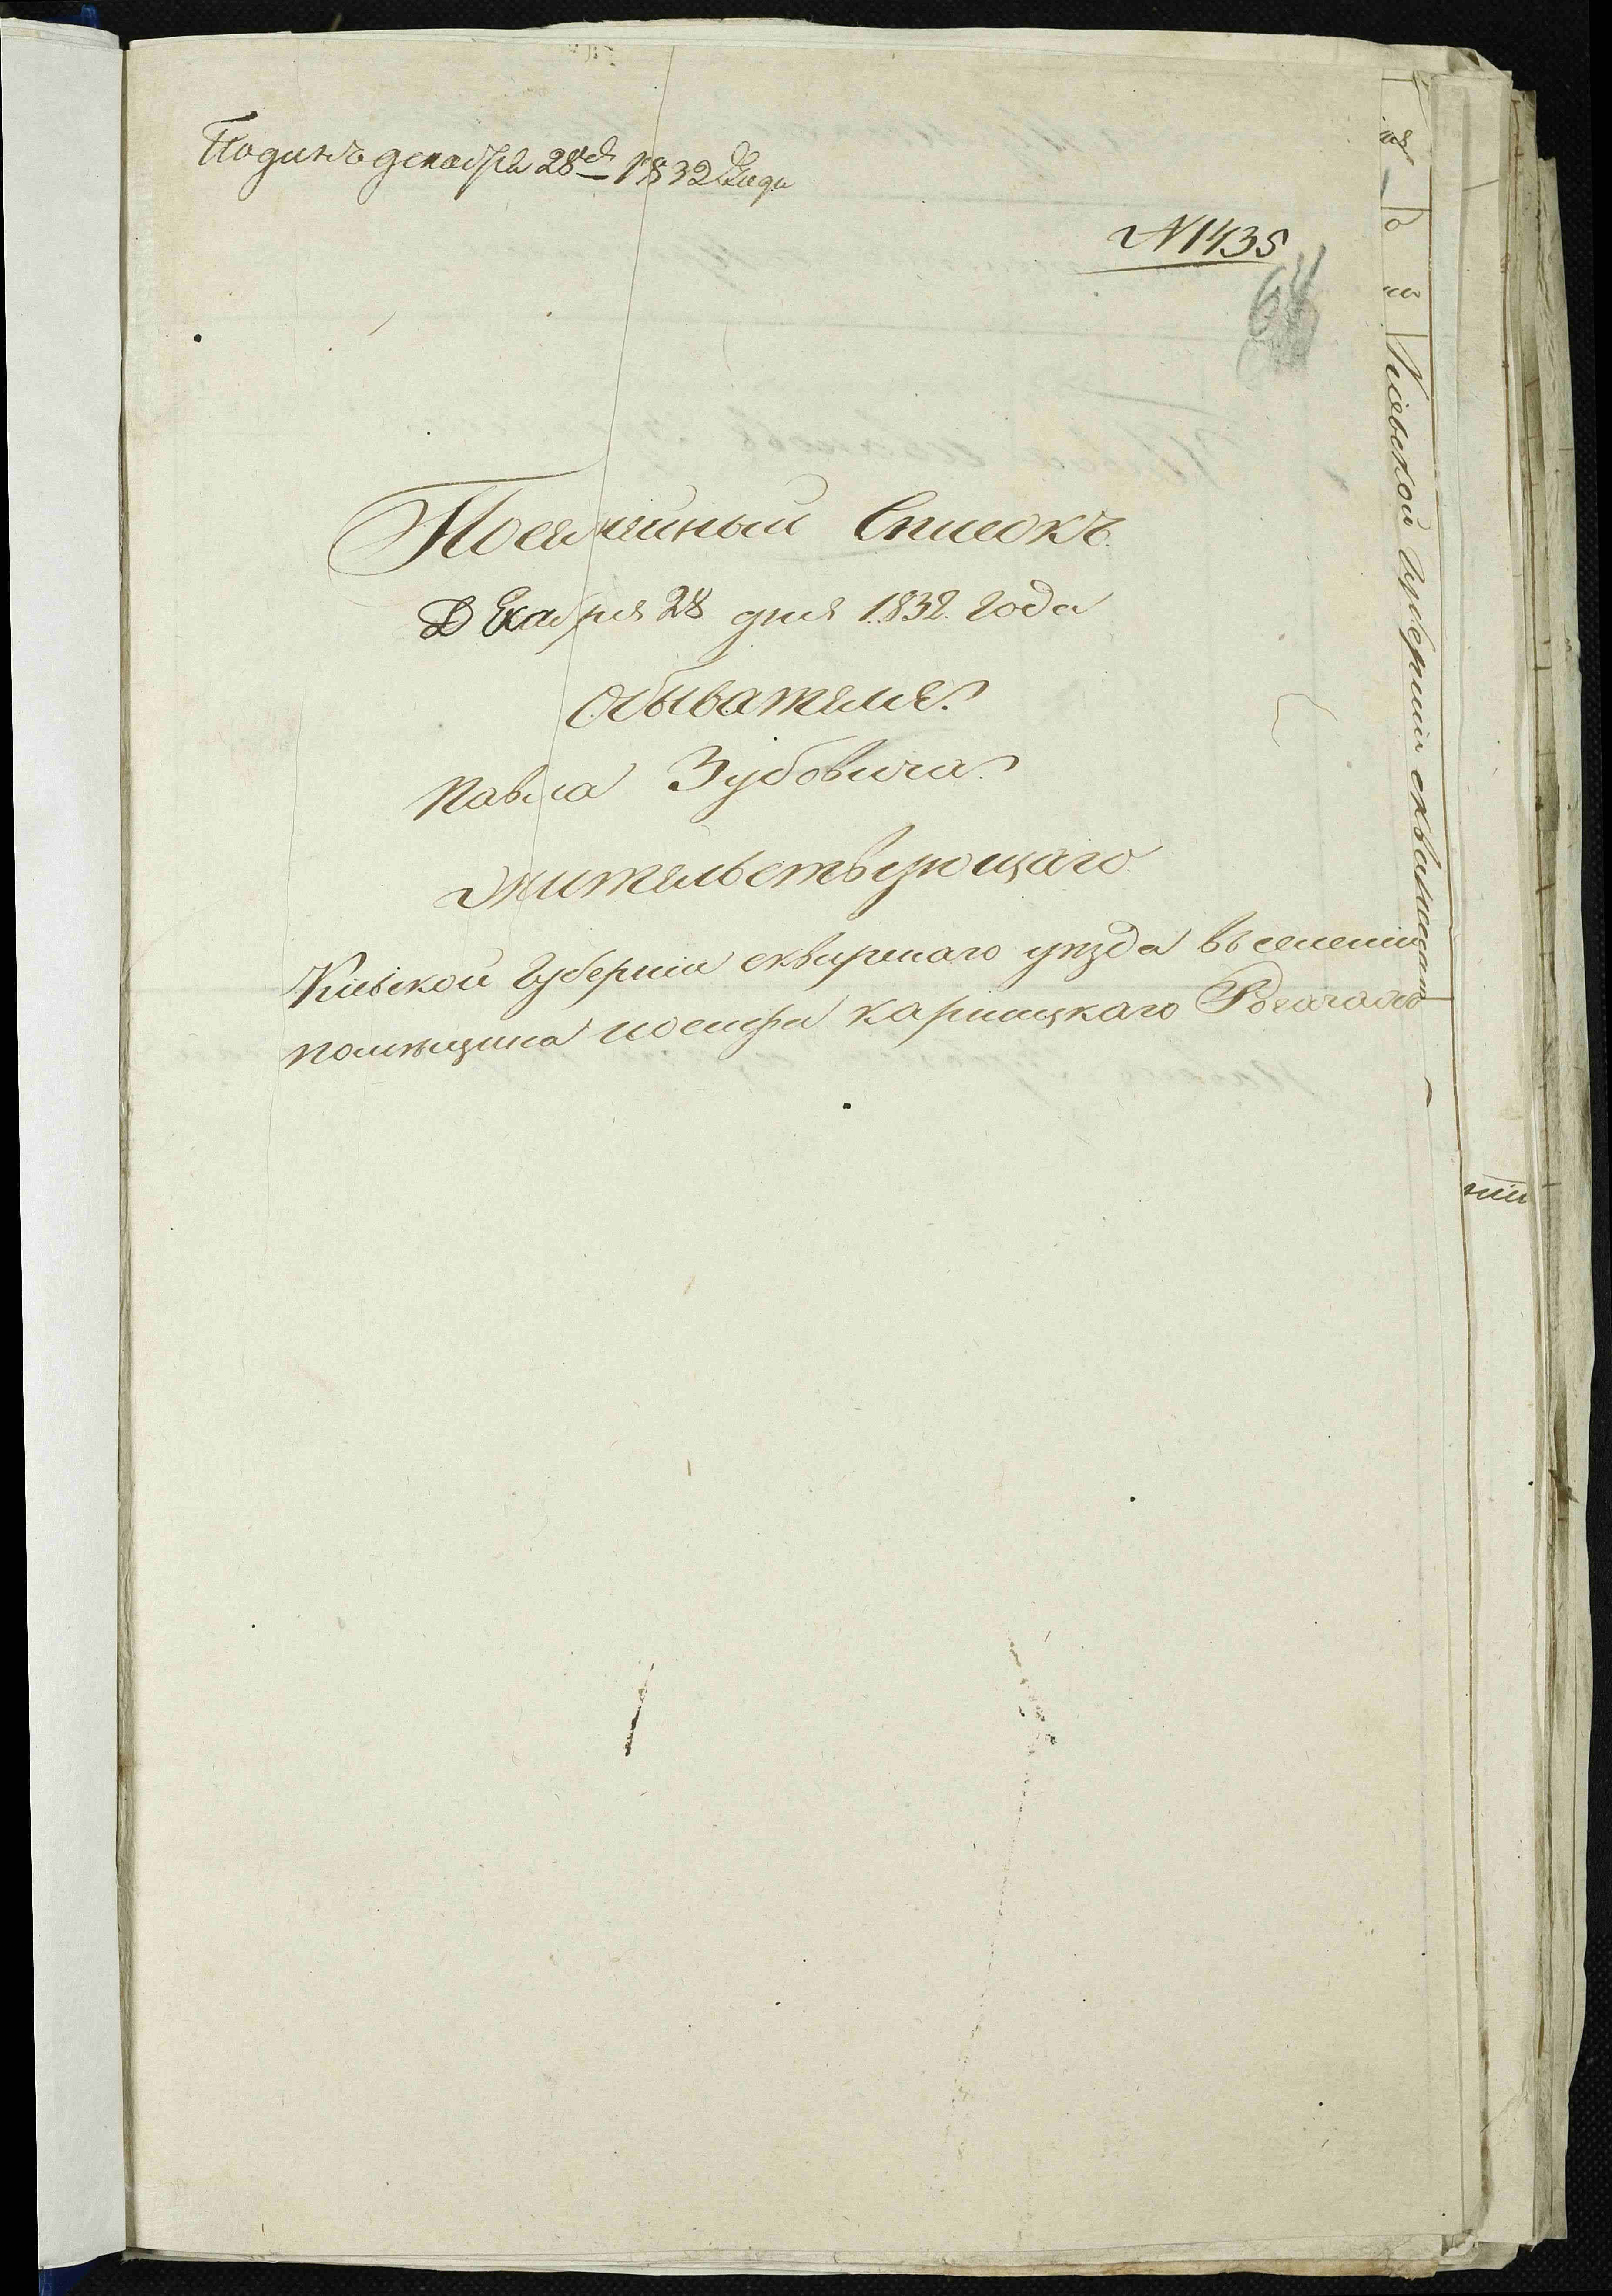 Поданъ декабря 28го 1832 года
N 1435
64
Посемейный Списокъ.
Декабря 28 дня 1832. года
Обывателя.
Павла Зубовича.
жительствующаго
Кіевской Губерніи сквирскаго уезда въ селеніи
помещика иосифа карпицкаго Рогачахъ
Кіевской Губерніи
ніи